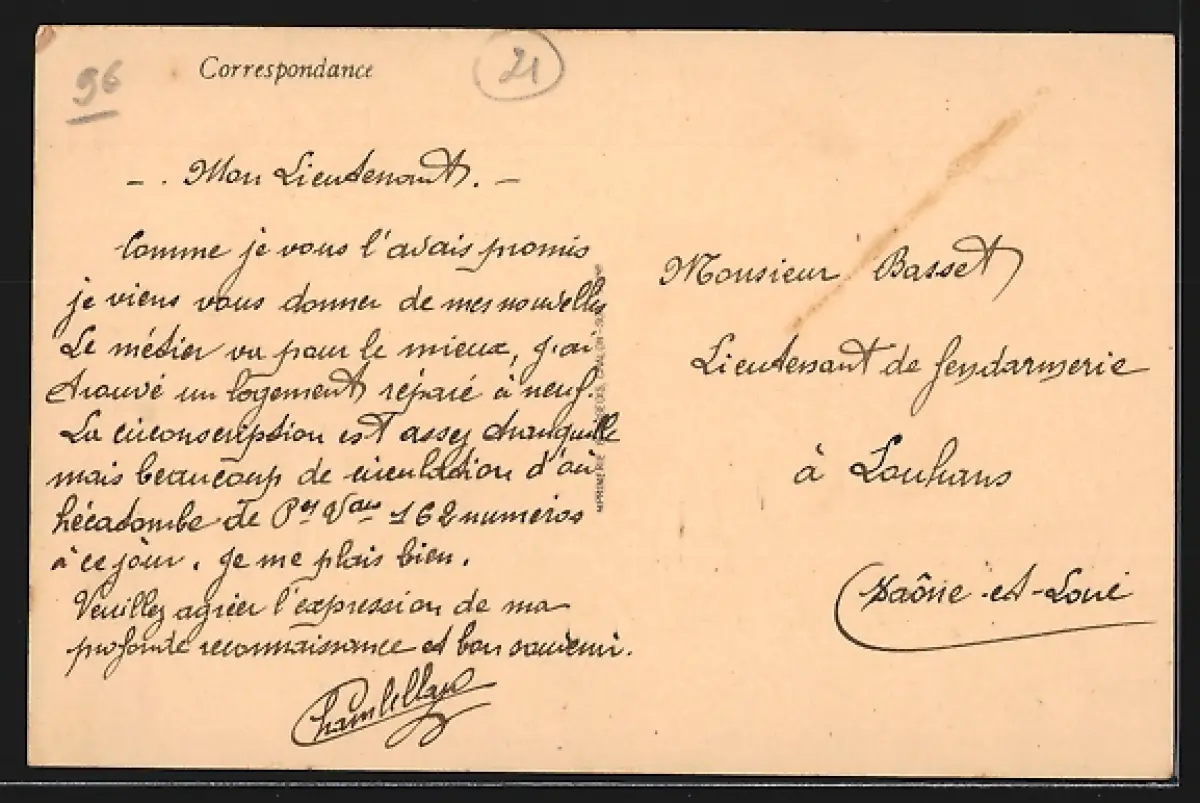 96
Correspondance
21
- . Mon Lieutenant. -
Comme je vous l'avais promis
je viens vous donner de mes nouvelles
Le métier va pour le mieux, j'ai
trouvé un logement réparé à neuf.
La circonscription est assez tranquille
mais beaucoup de circulation d'où
hécatombe de Pes Vaux 162 numéros
à ce jour. Je me plais bien.
Veuillez agréer l'expression de ma
profonde reconnaissance et bon souvenir.
IMPRIMERIE CHALON-SUR-
Monsieur Basset
Lieutenant de gendarmerie
à Louhans
Saône-et-Loire